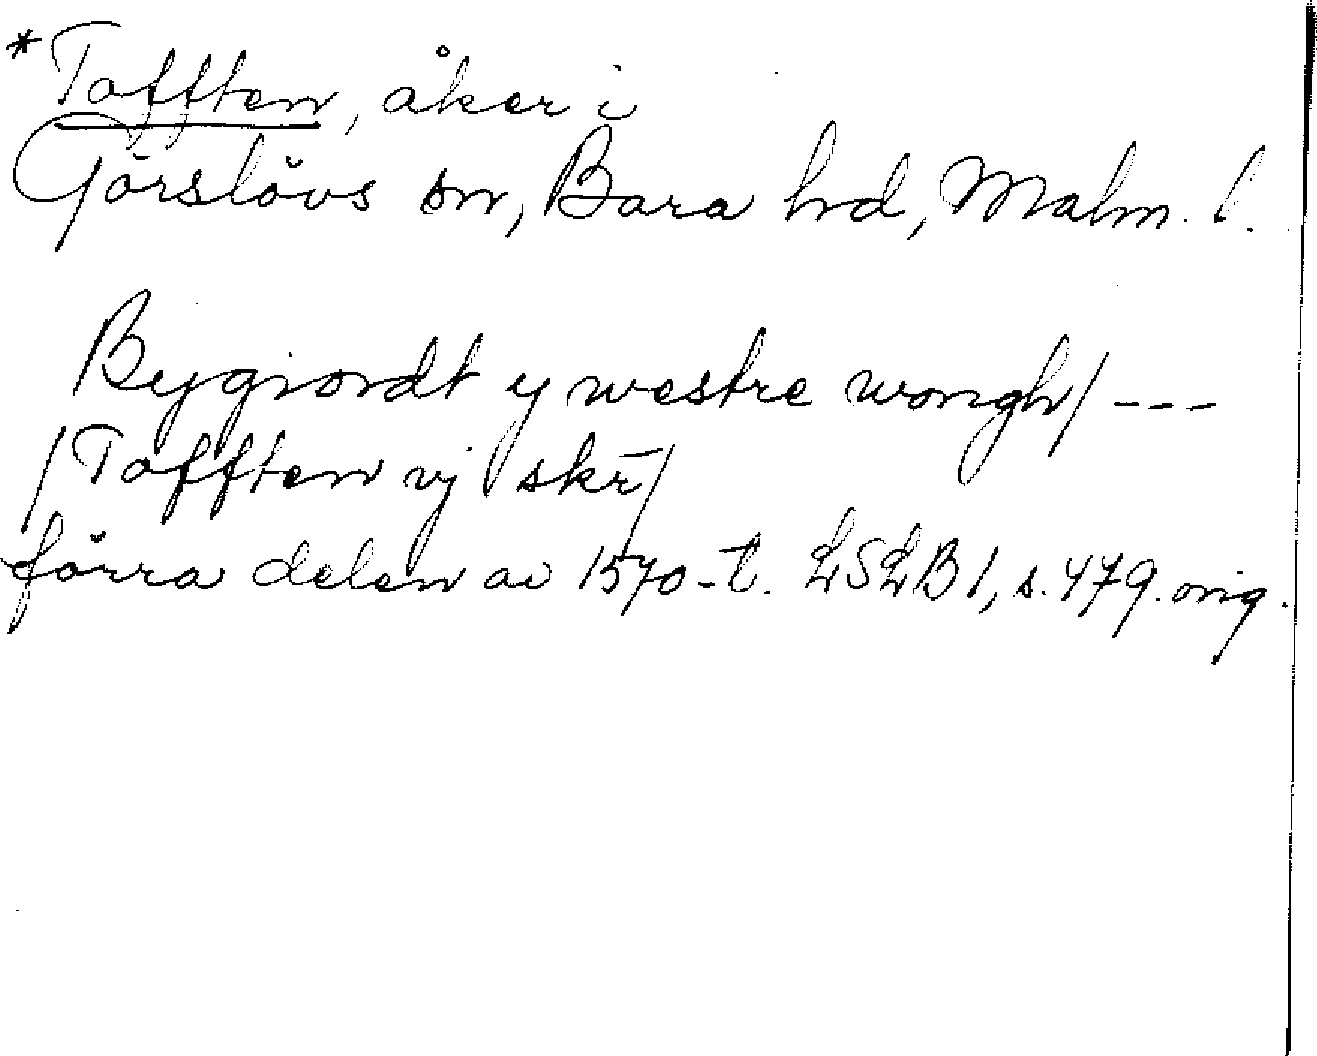 *Tofften, åker i
Görslövs sn, Bara hd, Malm. l.
Bygiordt y westre wongh/ ---
/Tofften vj skr̄/
förra delen av 1570-t. LSLB 1, s. 479. orig.